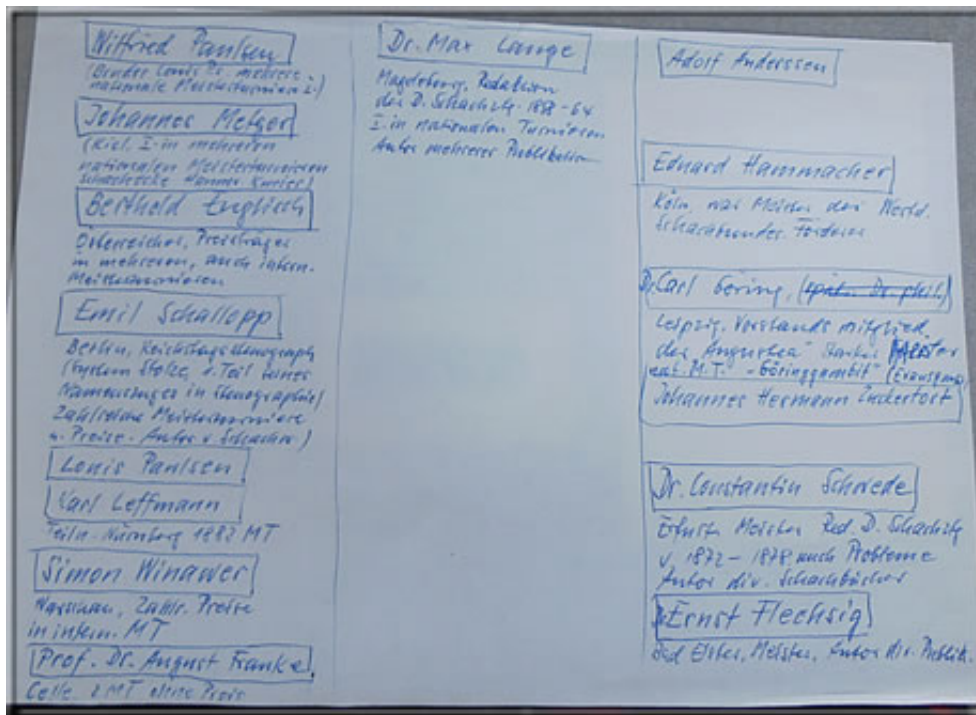 Wilfried Paulsen
(Bruder Louis P.s. mehrere
nationale Meisterturniere
Johannes Metger
(Kiel. I. in mehreren
nationalen Meisterturnieren
Schachecke Hannov. Kurier)
Berthold Englisch
Österreicher, Preisträger
in mehreren, auch intern.
Meisterturnieren
Emil Schallopp
Berlin, Reichstagsstenograph
(System Stolze, Teil seines
Namenszuges in Stenographie)
Zahlreiche Meisterturniere
u. Preise - Autor v. Schachbü.)
Louis Paulsen
Karl Leffmann
Teiln. Nürnberg 1882 MT
Simon Winawer
Warschau, Zahlr. Preise
in intern. MT
Prof. Dr. August Franke
Celle. 2 MT ohne Preis
Dr. Max Lange
Magdeburg, Redaktion
der D. Schachztg. 1858-64
I. in nationalen Turnieren
Autor mehrerer Publikation
Adolf Anderssen
Eduard Hammacher
Köln, war Meister des Westd.
Schachbundes. Förderer
Dr. Carl Göring, (später Dr. phil.)
Leipzig. Vorstandsmitglied
der "Augustea" starker Meister
nat. M.T. - "Göringgambit"
Johannes Hermann Zuckertort
Dr. Constantin Schwede
Ernster Meister Red. D. Schachztg
v. 1872 - 1878, auch Probleme
Autor div. Schachbücher
Dr. Ernst Flechsig
Bad Elster, Meister, Autor div. Publik.